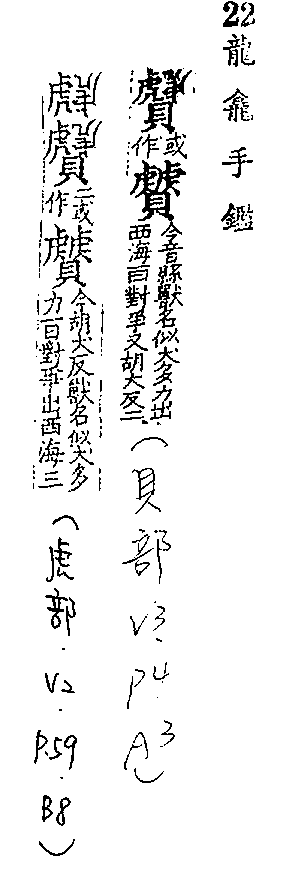 22龍龕手鑑
或作今音縣獸名似犬多力出西海百對爭又胡犬反二(貝部.V3.P4.A3)
二或作今胡犬反獸名似犬多力百對爭出西海三(虎部.V2.P.59.B8)